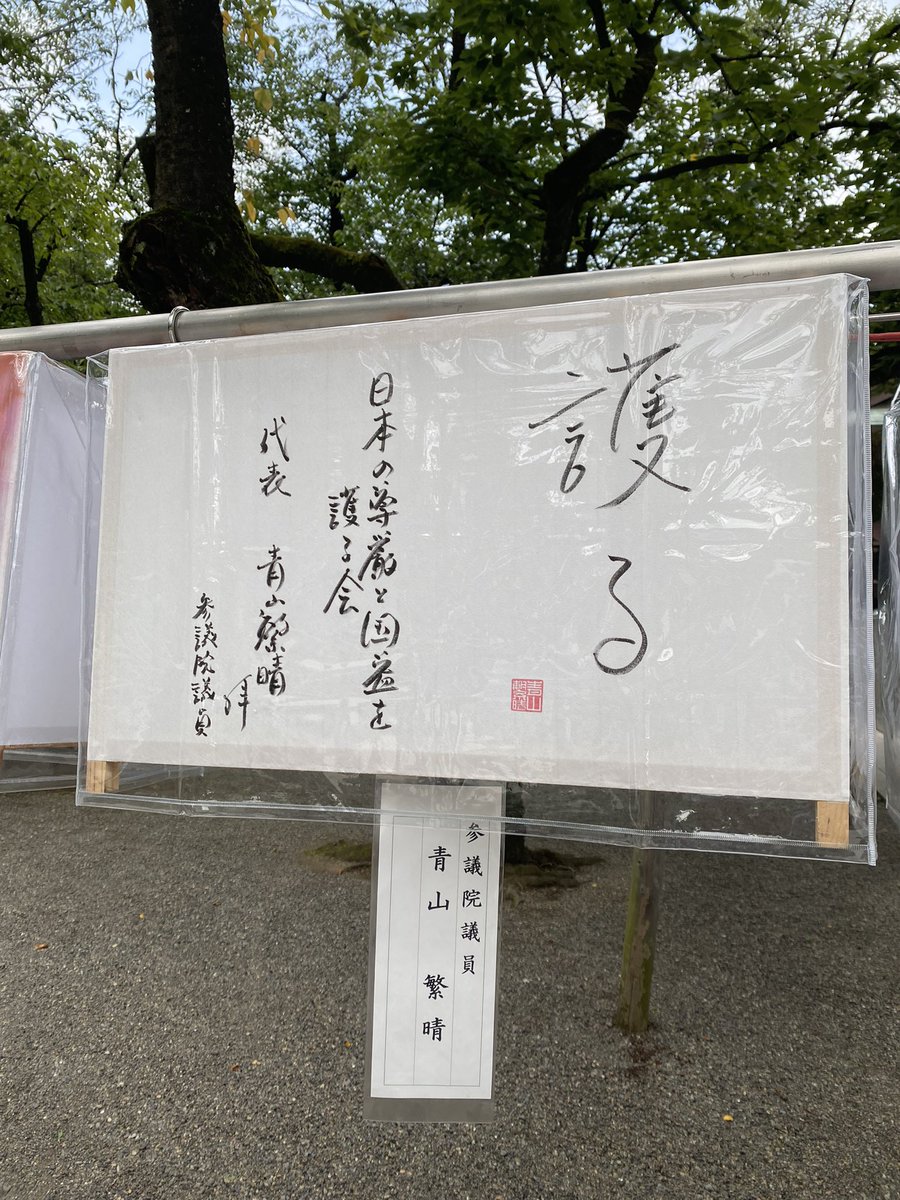 護る
日本の尊厳と国益を
護る会
代表 青山繁晴 拝
参議院議員
青山
繁晴
参議院議員
青山 繁晴